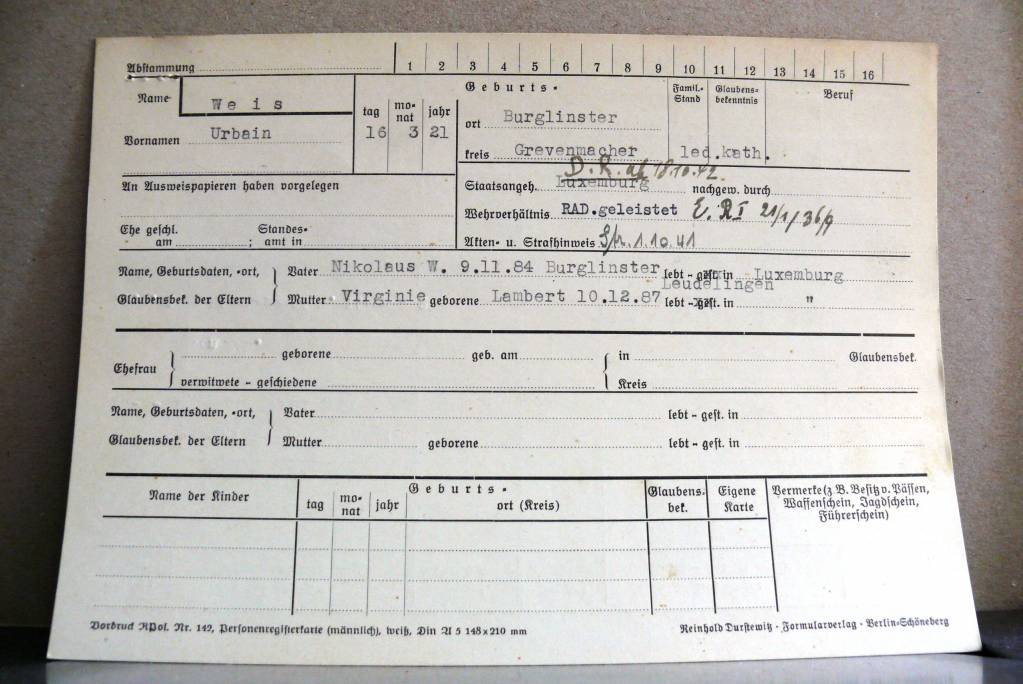 Abstammung 1 2 3 4 5 6 7 8 9 10 11 12 13 14 15 16
Name Weis tag monat jahr Geburts- Famil.-Stand Glaubensbekenntnis Beruf
Vornamen Urbain 16 3 21 ort Burglinster
kreis Grevenmacher led. kath.
D.R. ab 18.10.42.
An Ausweispapieren haben vorgelegen Staatsangeh. Luxemburg nachgew. durch
Wehrverhältnis RAD.geleistet E. R I 21/1/36/9
Ehe geschl. am ; Standesamt in Akten- u. Strafhinweis Str. 1.10.41
Name, Geburtsdaten, -ort, Vater Nikolaus W. 9.11.84 Burglinster lebt - gest. in Luxemburg
Leudelingen
Glaubensbek. der Eltern Mutter Virginie geborene Lambert 10.12.87 lebt - gest. in "
Ehefrau geborene geb. am in Glaubensbek.
verwitwete - geschiedene Kreis
Name, Geburtsdaten, -ort, Vater lebt - gest. in
Glaubensbek. der Eltern Mutter geborene lebt - gest. in
Name der Kinder Geburts- Glaubensbek. Eigene Karte Vermerke (z. B. Besitz v. Pässen, Waffenschein, Jagdschein, Führerschein)
tag monat jahr ort (Kreis)
Vordruck RPol. Nr. 142, Personenregisterkarte (männlich), weiß, Din A 5 148 x 210 mm Reinhold Durstewitz · Formularverlag · Berlin-Schöneberg